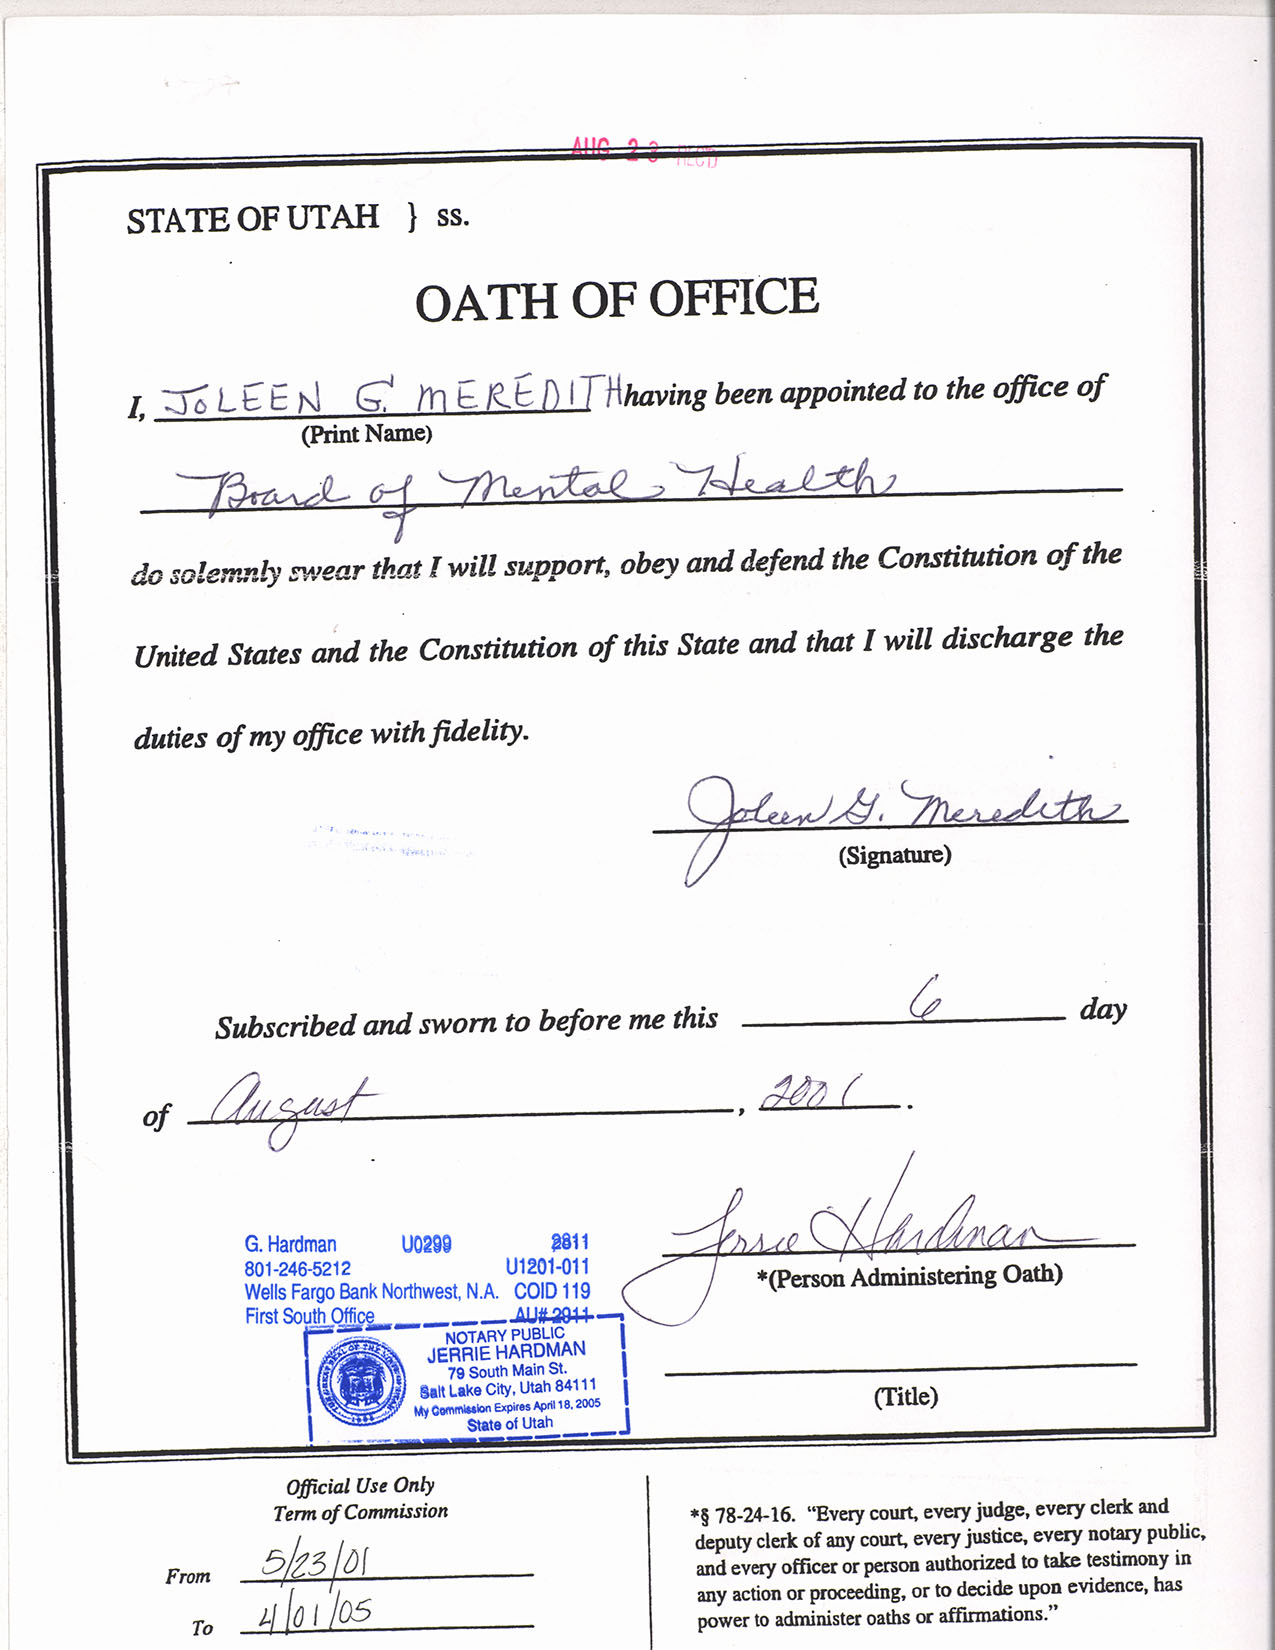 AUG 23 REC'D
STATE OF UTAH } ss.
OATH OF OFFICE
I, JOLEEN G. MEREDITH having been appointed to the office of
(Print Name)
Board of Mental Health
do solemnly swear that I will support, obey and defend the Constitution of the
United States and the Constitution of this State and that I will discharge the
duties of my office with fidelity.
Joleen G. Meredith
(Signature)
Subscribed and sworn to before me this 6 day
of August, 2001.
Jerrie Hardman
*(Person Administering Oath)
(Title)
G. Hardman U0299 2811
801-246-5212 U1201-011
Wells Fargo Bank Northwest, N.A. COID 119
First South Office AU# 2911
NOTARY PUBLIC
JERRIE HARDMAN
79 South Main St.
Salt Lake City, Utah 84111
My Commission Expires April 18, 2005
State of Utah
Official Use Only
Term of Commission
From 5/23/01
To 4/01/05
*§ 78-24-16. “Every court, every judge, every clerk and
deputy clerk of any court, every justice, every notary public,
and every officer or person authorized to take testimony in
any action or proceeding, or to decide upon evidence, has
power to administer oaths or affirmations.”